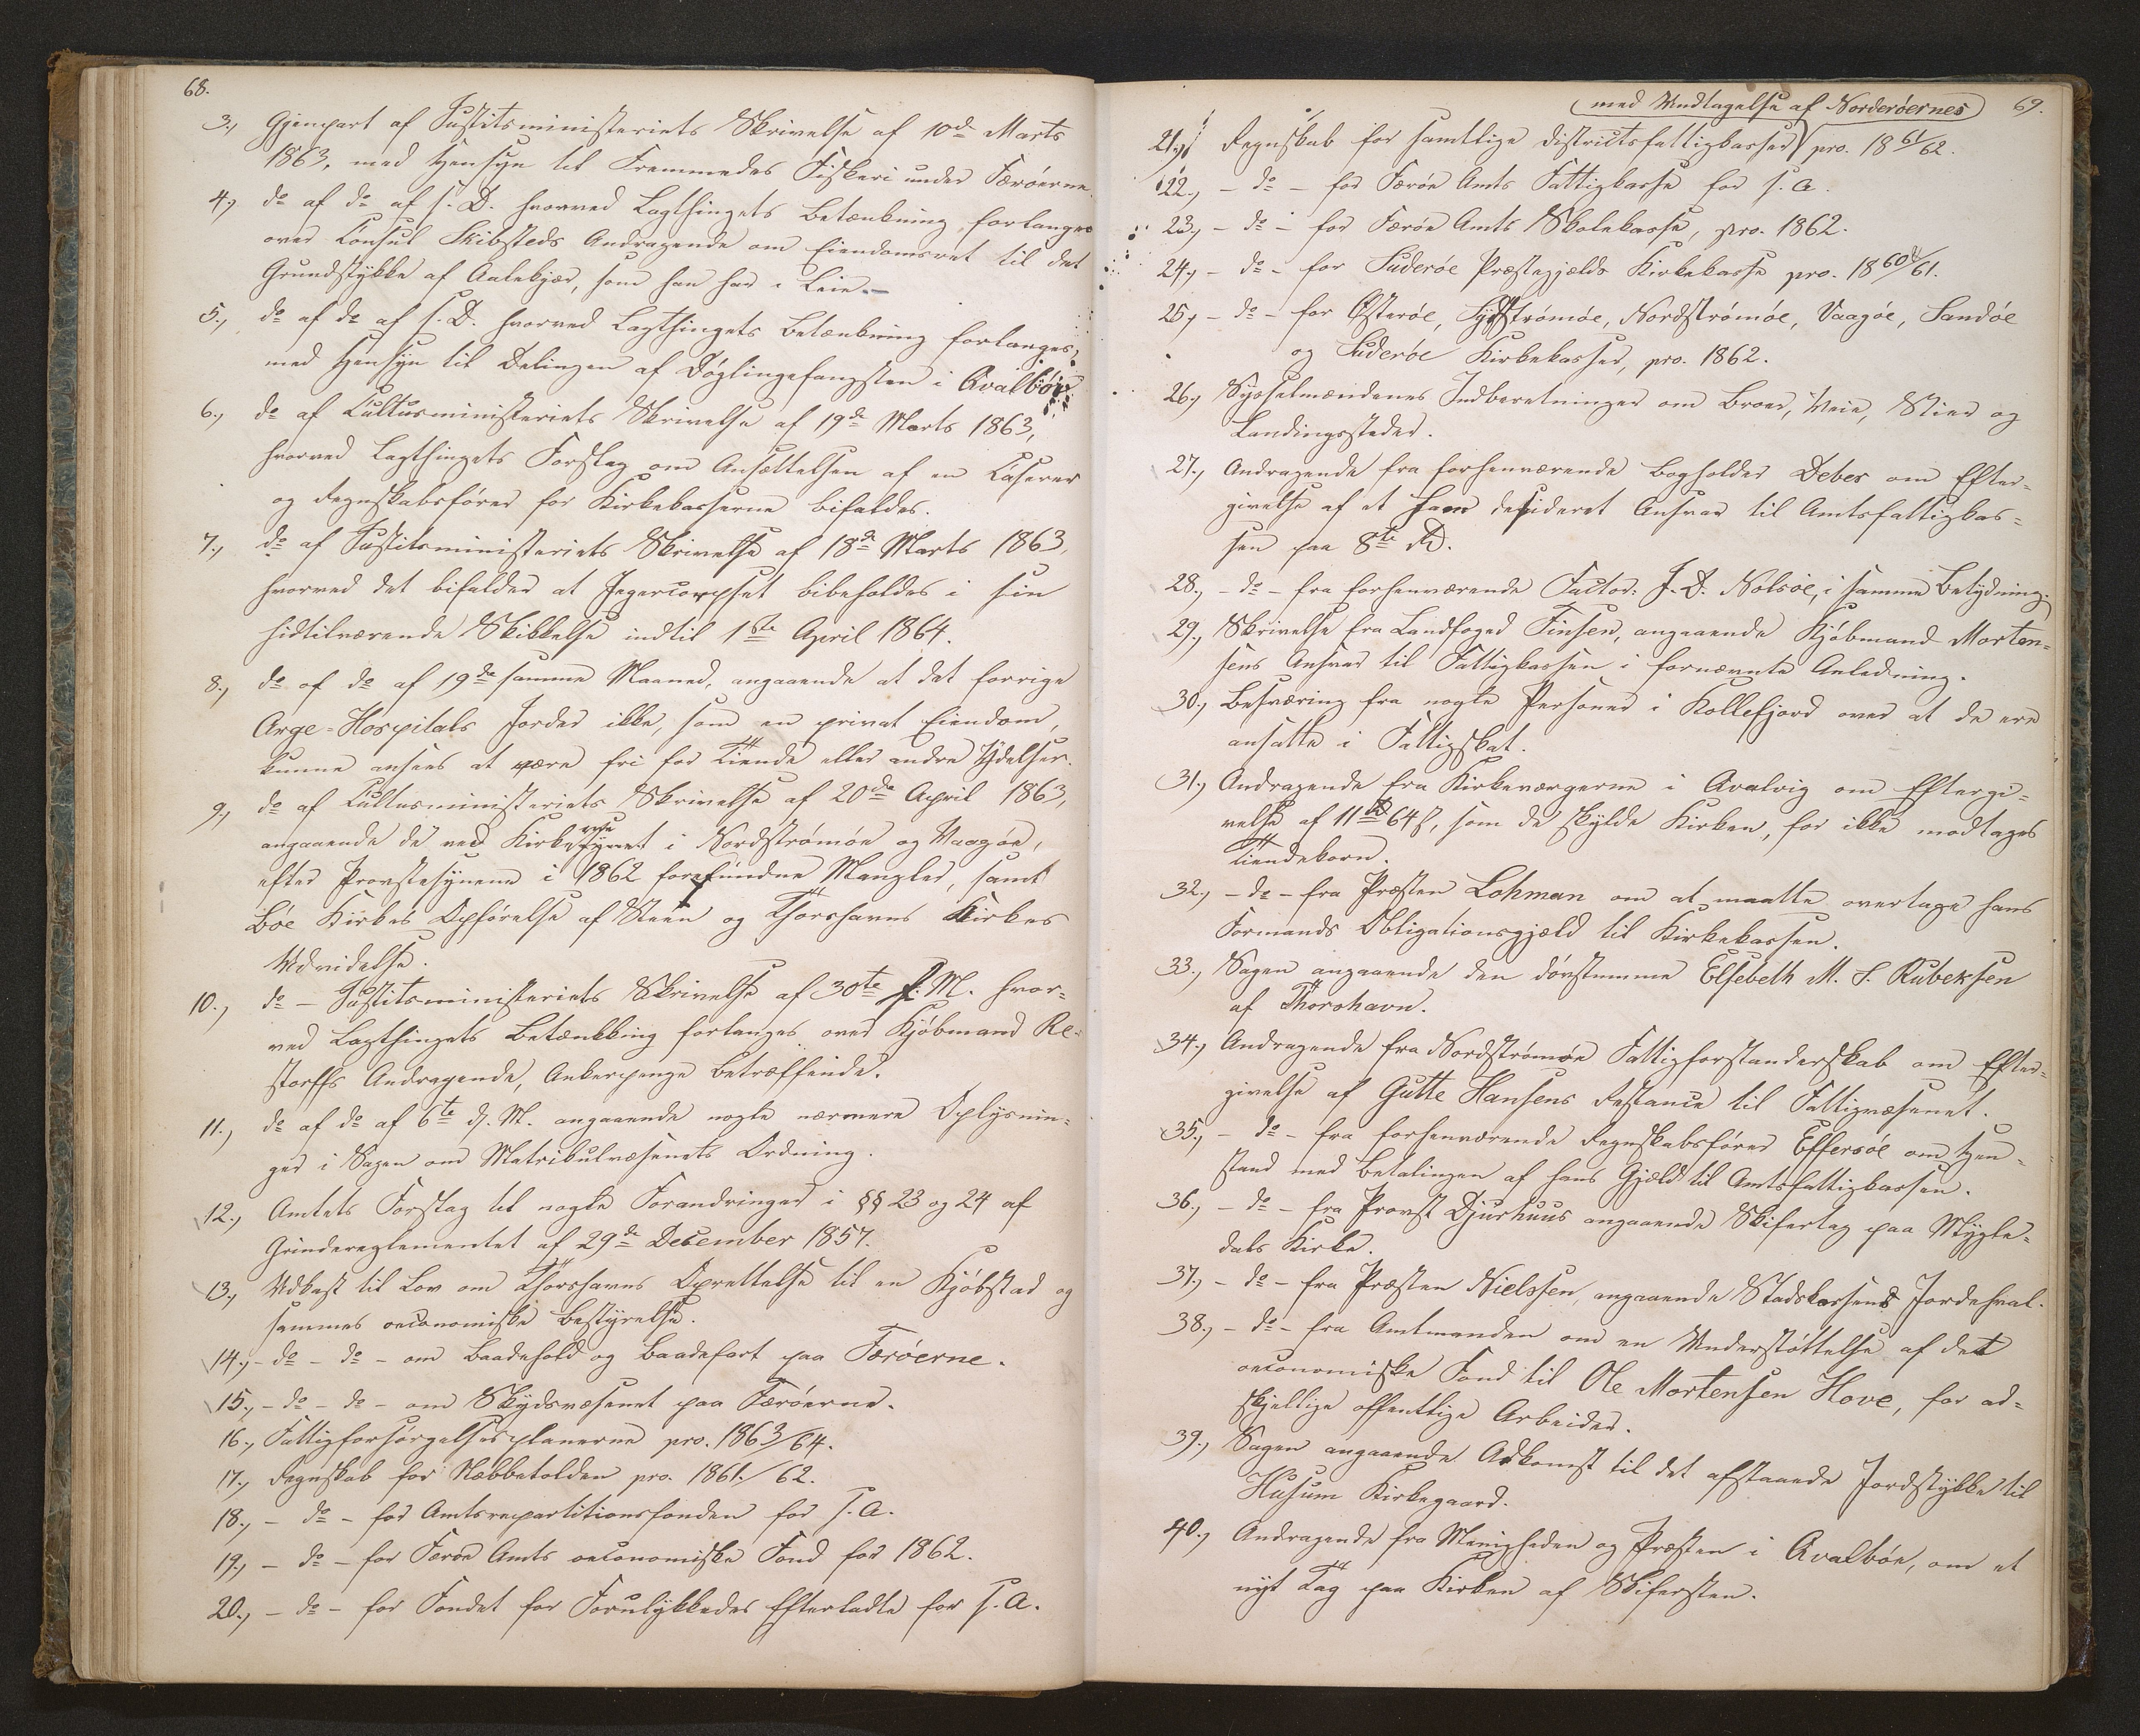 68.
3., Gjenpart af Justitsministeriets Skrivelse af 10de Marts
1863, med Hensyn til Fremmedes Fiskeri under Færöerne.
4, do af do af s. D. hvorved Lagthingets Betænkning forlanges
over Consul Skibsteds Andragende om Eiendomsret til det
Grundstykke af Aalekjær, som han har i Leie.—
5., do af do af s. D. hvorved Lagthingets Betænkning forlanges,
med Hensyn til Delingen af Döglingefangsten i Qvalböe.
6., do af Cultusministeriets Skrivelse af 19de Marts 1863,
hvorved Lagthingets Forslag om Ansættelsen af en Casserer
og Regnskabsförer for Kirkekasserne bifaldes.
7., do af Justitsministeriets Skrivelse af 18de Marts 1863,
hvorved det bifaldes at Jegercorpset bibeholdes i sin
hidtilværende Skikkelse indtil 1ste April 1864.
8., do af do af 19de samme Maaned, angaaende at det forrige
Arge-Hospitals Jorder ikke, som en privat Eiendom,
kunne ansees at være fri for Tiende eller andre Ydelser.
9., do af Cultusministeriets Skrivelse af 20de April 1863,
angaaende de ved Kirkesynet i Nordströmöe og Vaagöe,
efter Provstesynene i 1862 forefundne Mangler, samt
Böe Kirkes Opförelse af Steen og Thorshavns Kirkes
Udvidelse.
10., do – Justitsministeriets Skrivelse af 30te f. M. hvor-
ved Lagthingets Betænkning forlanges over Kjöbmand Re-
storffs Andragende, Ankerpenge betræffende.
11., do af do af 6te d. M. angaaende nogle nærmere Oplysnin-
ger i Sagen om Matrikulvæsenets Ordning.
12., Amtets Forslag til nogle Forandringer i §§ 23 og 24 af
Grindereglementet af 29de December 1857.
13., Udkast til Lov om Thorshavns Oprettelse til en Kjöbstad og
sammes oeconomiske Bestyrelse.
14., – do – do – om Baadehold og Baadefart paa Færöerne.
15., – do – do – om Skydsvæsenet paa Færöerne.
16., Fattigforsörgelsesplanerne pro. 1863/64.
17., Regnskab for Næbbetolden pro. 1861/62.
18., – do – for Amtsrepartitionsfonden for s. A.
19., – do – for Færöe Amts oeconomiske Fond for 1862.
20., – do – for Fondet for Forulykkedes Efterladte for s. A.
69.
(med Undtagelse af Norderöernes)
21., Regnskab for samtlige Districtsfattigkasser pro. 1861/62.
22., – do – for Færöe Amts Fattigkasse for s. A.
23., – do – for Færöe Amts Skolekasse, pro. 1862.
24, – do – for Suderöe Præstegjælds Kirkekasse pro. 1860/61.
25, – do – for Österöe, Sydströmöe, Nordströmöe, Vaagöe, Sandöe
og Suderöe Kirkekasser, pro. 1862.
26., Sysselmændenes Indberetninger om Broer, Veie, Stier og
Landingssteder.
27., Andragende fra forhenværende Bogholder Debes om Efter-
givelse af et ham desideret Ansvar til Amtsfattigkas-
sen paa 8te Rd.
28., – do – fra forhenværende Factor: J. D. Nolsöe, i samme Betydning.
29., Skrivelse fra Landfoged Finsen, angaaende Kjöbmand Morten-
sens Ansvar til Fattigkassen i fornævnte Anledning.
30., Besværing fra nogle Personer i Kollefjord over at de ere
ansatte i Fattigskat.
31., Andragende fra Kirkeværgerne i Qvalvig om Eftergi-
velse af 11 Rd 64 s, som de skylde Kirken, for ikke modtaget
Tiendekorn.
32., – do – fra Præsten Lohman om at maatte overtage hans
Formands Obligationsgjæld til Kirkekassen.
33., Sagen angaaende den dövstumme Elsebeth M. S. Rubeksen
af Thorshavn.
34., Andragende fra Nordströmöe Fattigforstanderskab om Efter-
givelse af Gutte Hansens Restance til Fattigvæsenet.
35., – do – fra forhenværende Regnskabsförer Effersöe om Hen-
stand med Betalingen af hans Gjæld til Amtsfattigkassen.
36., – do – fra Provst Djurhuus angaaende Skifertag paa Mygle-
dals Kirke.
37., – do – fra Præsten Nielssen, angaaende Stadskassens Jordehval.
38., – do – fra Amtmanden om en Understöttelse af det
oeconomiske Fond til Ole Mortensen Hove, for ad-
skjellige offentlige Arbeider.
39., Sagen angaaende Adkomst til det afstaaede Jordstykke til
Husum Kirkegaard.
40., Andragende fra Menigheden og Præsten i Qvalböe, om et
nyt Tag paa Kirken af Skifersteen.